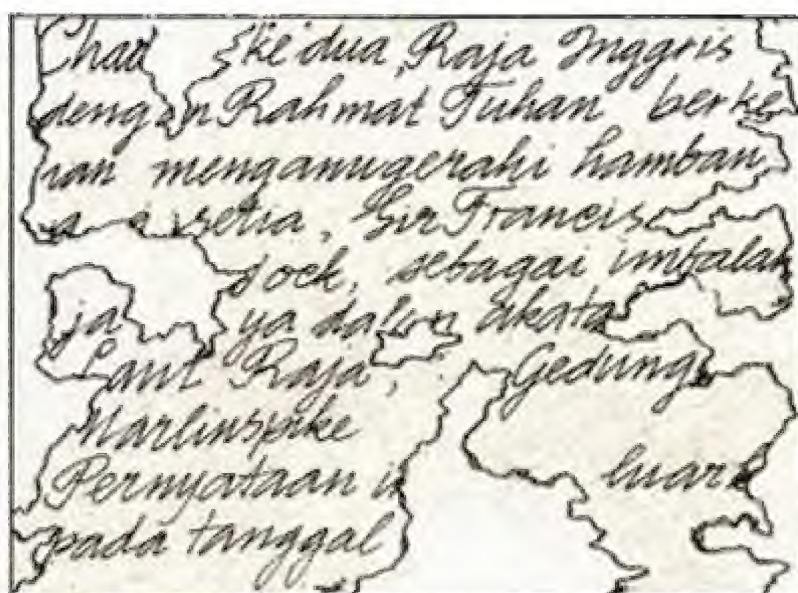 Chad ke dua, Raja Inggris
dengan Rahmat Tuhan berke
nan menganugerahi hamban
setia, Sir Francis
dock, sebagai imbalan
ja ya dalam akata
Laut Raja, Gedung
Marlinspike
Pernyataan i luark
pada tanggal